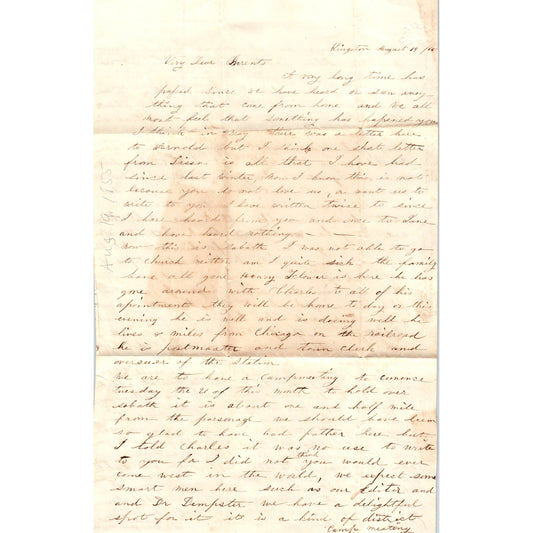 Kingston August 19 /55
Very Dear Parents
A vary long time has
passed since we have heard or seen any
thing that came from home and we all
most feel that something has hapened you
I think in May there was a letter here
to but I think one short letter
from is all that I have had
since last winter, now I know this is not
because you do not love us, or want us to
write to you I have written twice to since
I have heard from you and once to Jane
and have heard nothing — —
now this is sabath I was not able to go
to church neither am I quite sick the family
have all gone Henry Flower is here he has
gone around with Charles to all of his
apointments they will be home to day or this
evening he is well and is doing well he
lives miles from Chicago on the railroad
he is postmaster and town clerk and
overseer of the Station
we are to have a campmeeting to comence
tuesday the 21 of this month to hold over
sabath it is about one and half mile
from the parsonage we should have been
so glad to have had father here but
I told Charles it was no use to write
to you for I did not think you would ever
come west in the world, we expect some
smart men here such as our Editor and
and Dr Dempster we have a delightful
spot for it it is a kind of district
Camp meeting
Aug 19 1855